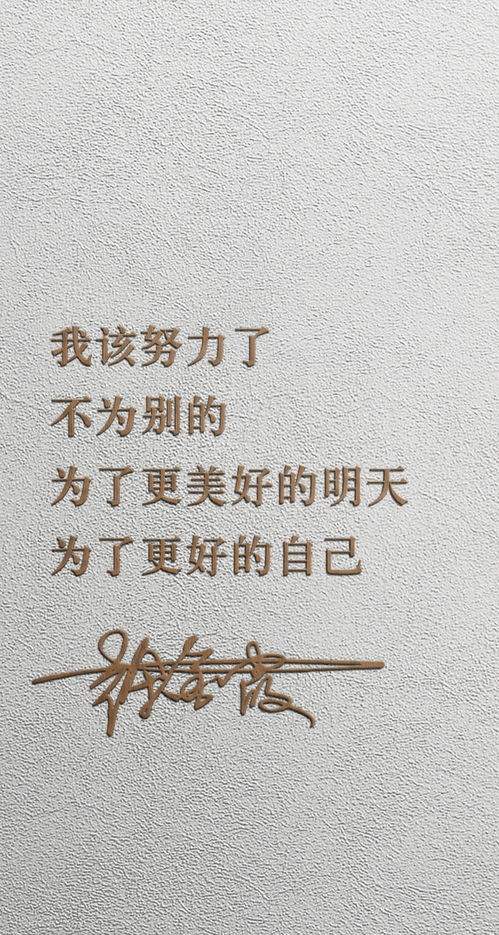 我该努力了
不为别的
为了更美好的明天
为了更好的自己